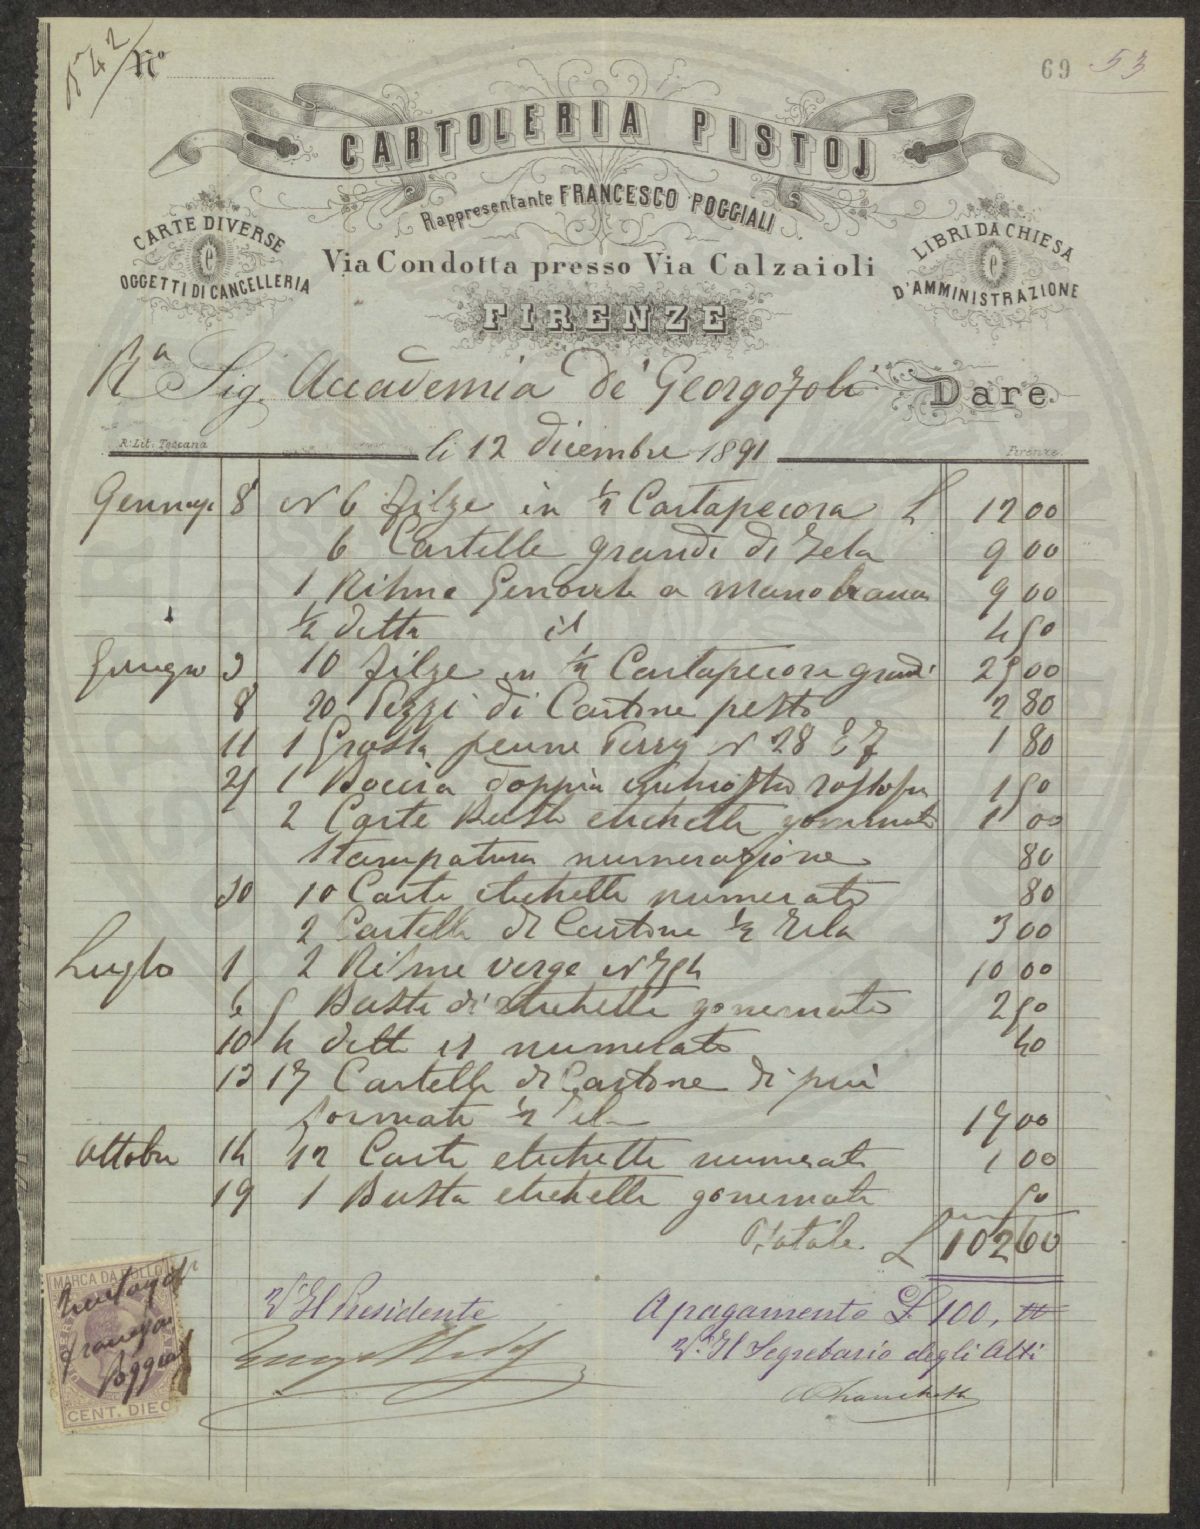 N° 42
N°
69 53
CARTOLERIA PISTOJ
Rappresentante FRANCESCO POGGIALI
CARTE DIVERSE
e
OGGETTI DI CANCELLERIA
LIBRI DA CHIESA
e
D'AMMINISTRAZIONE
Via Condotta presso Via Calzaioli
FIRENZE
Ra Sig. Accademia de' Georgofoli Dare
R. Lit. Toscana
li 12 dicembre 1891
Firenze
Gennajo 8 N 6 filze in ½ Cartapecora L 12 00
6 Cartelle grandi di tela 9 00
1 Risma Genovele a mano bianca 9 00
½ detta id 4 50
Giugno 3 10 filze in ½ Cartapecora grandi 25 00
8 20 Pezzi di Cartone pesto 2 80
11 1 Grossa penne Perry N 28 EF 1 80
25 1 Boccia doppia inchiostro 1 50
2 Carte Buste etichette gommate 1 00
Stampatura numerazione 80
30 10 Carte etichette numerate 80
2 Cartelle di Cartone ½ tela 3 00
Luglio 1 2 Risme verge N 10 00
6 5 Buste di etichette gommate 2 50
10 4 dette id numerate 40
13 17 Cartelle di Cartone di più
formati ½ tela 17 00
Ottobre 14 12 Carte etichette numerate 1 00
19 1 Busta etichette gommate 50
Totale L 102 60
V° Il Presidente
A pagamento L 100, 00
V° Il Segretario degli Atti
MARCA DA BOLLO
Francesco
Poggiali
CENT. DIECI